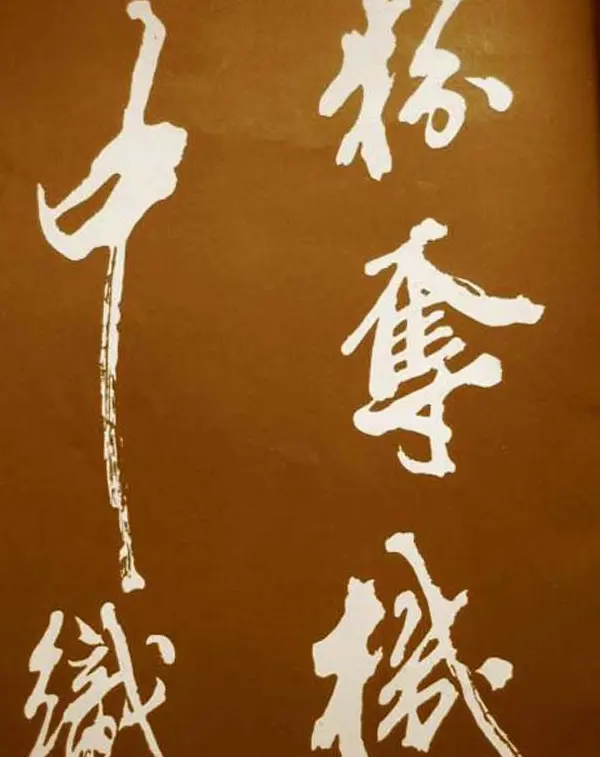 粉奪機
中織